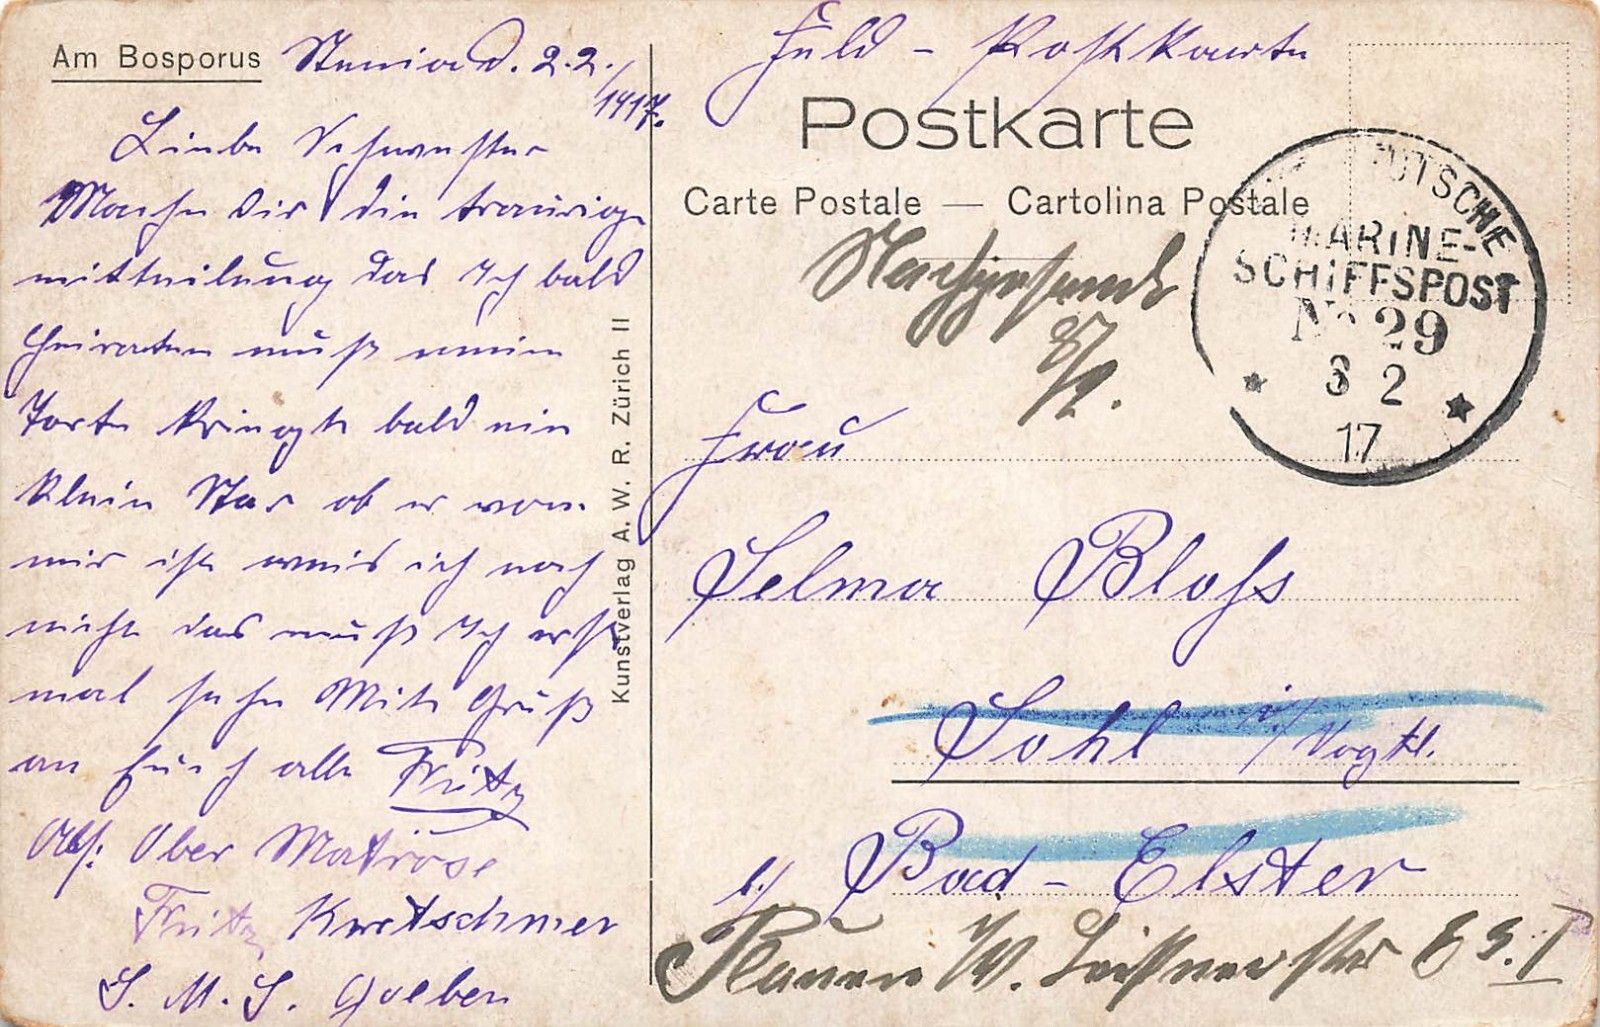 Am Bosporus Stenia d. 2.2./1917.
Liebe Schwester
Mache Dir die traurige
mitteilung das Ich bald
heiraten muß meine
Torte kriegte bald ein
klein Star ob er vom
mir ist weis ich noch
nicht das muß Ich erst
mal sehn Mit Gruß
an Euch alle Fritz
Abs: Ober Matrose
Fritz Kretschmer
S. M. S. Goeben
Kunstverlag A. W. R. Zürich II
Feld - Postkarte
Postkarte
Carte Postale — Cartolina Postale
Nachgesandt
8/2.
DEUTSCHE
MARINE-
SCHIFFSPOST
No 29
3 2
17
Frau
Selma Bloss
Sohl i/Vogtl.
b/ Bad-Elster
Plauen W. Leissnerstr 63. I